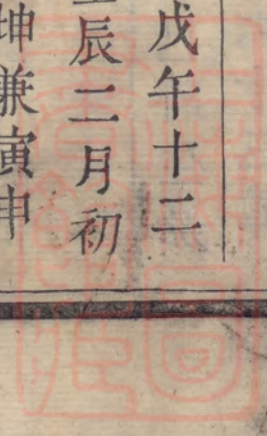 戊午十二
辰二月初
坤兼寅申